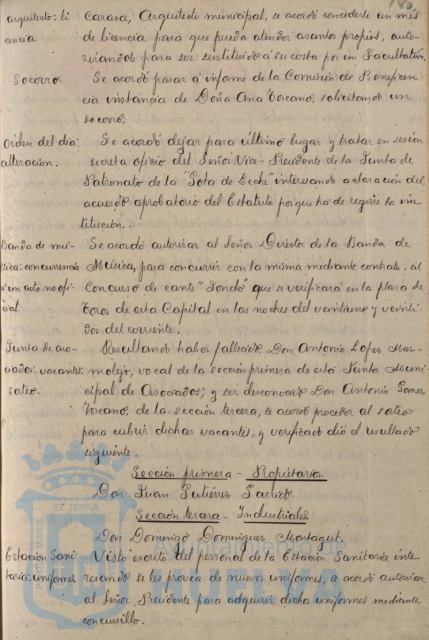 180.
arquitecto: li- Carasa, Arquitecto municipal, se acordó concederle un mes
cencia de licencia para que pueda atender asuntos propios, auto-
rizandole para ser sustituido a su costa por un Facultativo.
Socorro. Se acordó pasar á informe de la Comisión de Beneficen-
cia instancia de Doña Ana Toscano, solicitando un
socorro.
Orden del dia: Se acordó dejar para último lugar y tratar en sesión
alteración. secreta oficio del Señor Vice-Presidente de la Junta de
Patronato de la "Gota de Leche" interesando aclaración del
acuerdo aprobatorio del Estatuto porque ha de regirse la ins-
titución.
Banda de mú- Se acordó autorizar al Señor Director de la Banda de
sica: concurrencia Música, para concurrir con la misma mediante contrato, al
a un acto no ofi- Concurso de cante "Jondo" que se verificará en la plaza de
cial Toros de esta Capital en las noches del veintiuno y veinti-
dos del corriente.
Junta de aso- Resultando haber fallecido Don Antonio Lopez Mar-
ciados: vacantes: molejo, vocal de la sección primera de esta Junta Muni-
sorteo. cipal de Asociados; y ser desconocido Don Antonio Gomez
Toscano, de la sección tercera, se acordó proceder al sorteo
para cubrir dichas vacantes, y verificado dió el resultado
siguiente.
Sección primera - Propietarios
Don Juan Gutiérrez Garrido
Sección tercera - Industriales
Don Domingo Dominguez Montagut.
Estación Sani- Visto escrito del personal de la Estación Sanitaria inte-
taria: uniformes resando se les provea de nuevos uniformes, se acordó autorizar
al Señor Presidente para adquirir dichos uniformes mediante
concursillo.